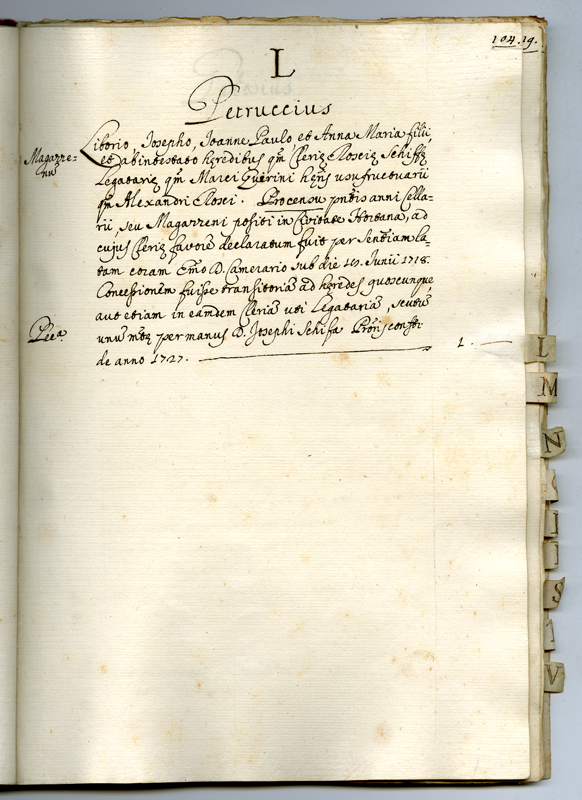 104.19.
L
Petruccius
Liborio, Josepho, Joanne Paulo et Anna Maria filii
Magazze=
nũ
et ab intestato hęredibus qm̃ Cleriæ Rosciæ Schiffę
Legatarię qm̃ Marci Guerini hęris usufructuarii
qm̃ Alexandri Rosci. Pro censu pntis anni Cella-
rii, seu Magazzeni positi in Civitate Hortana, ad
cujus Cleriæ favorẽ declaratum fuit per Sentiam la-
tam coram Emo D. Camerario sub die 19. Junii 1718.
Concessionẽm fuisse transitoriã ad hęredes quoscunque,
aut etiam in eamdem Cleriã uti Legatariã, scutũ
Pleea
unũ mtę per manus D. Josephi Schifa Proris consti
de anno 1727.
1.
L
M
N
S
V